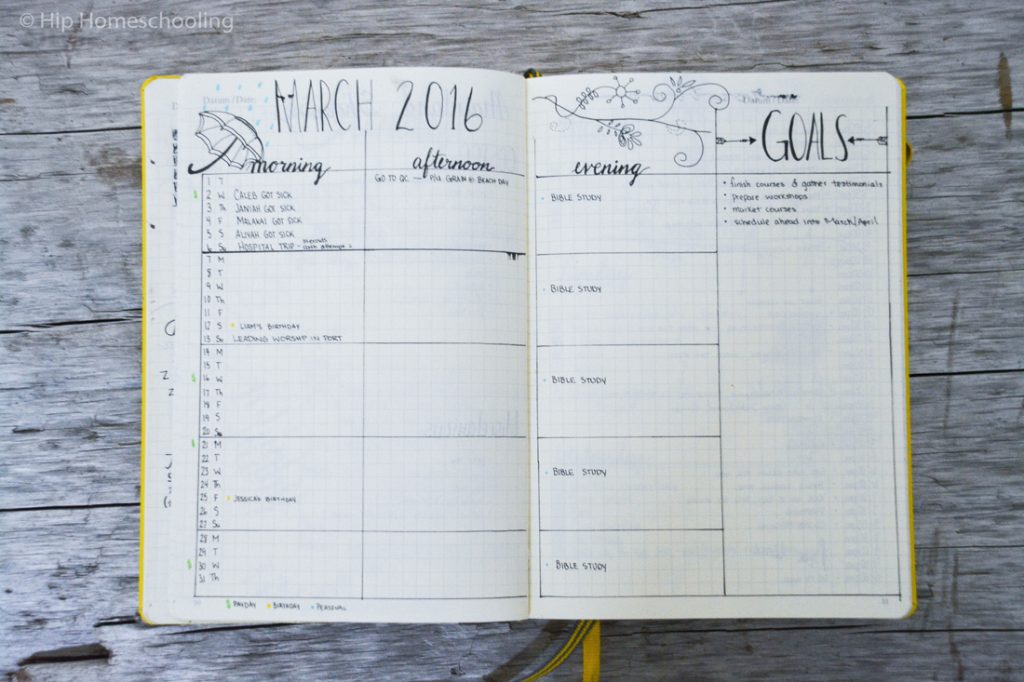 © Hip Homeschooling
Datum/Date:
MARCH 2016
morning afternoon evening
Datum/Date:
GOALS
1 T GO TO QC — P/U GRAIN & BEACH DAY
2 W CALEB GOT SICK
3 Th JANIAH GOT SICK
4 F MALAKAI GOT SICK
5 S ALIYAH GOT SICK
6 Su HOSPITAL TRIP -
7 M
8 T
9 W
10 Th
11 F
12 S LIAM'S BIRTHDAY
13 Su LEADING WORSHIP IN PORT
14 M
15 T
$ 16 W
17 Th
18 F
19 S
20 Su
$ 21 M
22 T
23 W
24 Th
25 F JESSICA'S BIRTHDAY
26 S
27 Su
28 M
29 T
$ 30 W
31 Th
$ PAYDAY • BIRTHDAY • PERSONAL
• BIBLE STUDY
• BIBLE STUDY
• BIBLE STUDY
• BIBLE STUDY
• BIBLE STUDY
• finish courses & gather testimonials
• prepare workshops
• market courses
• schedule ahead into March/April